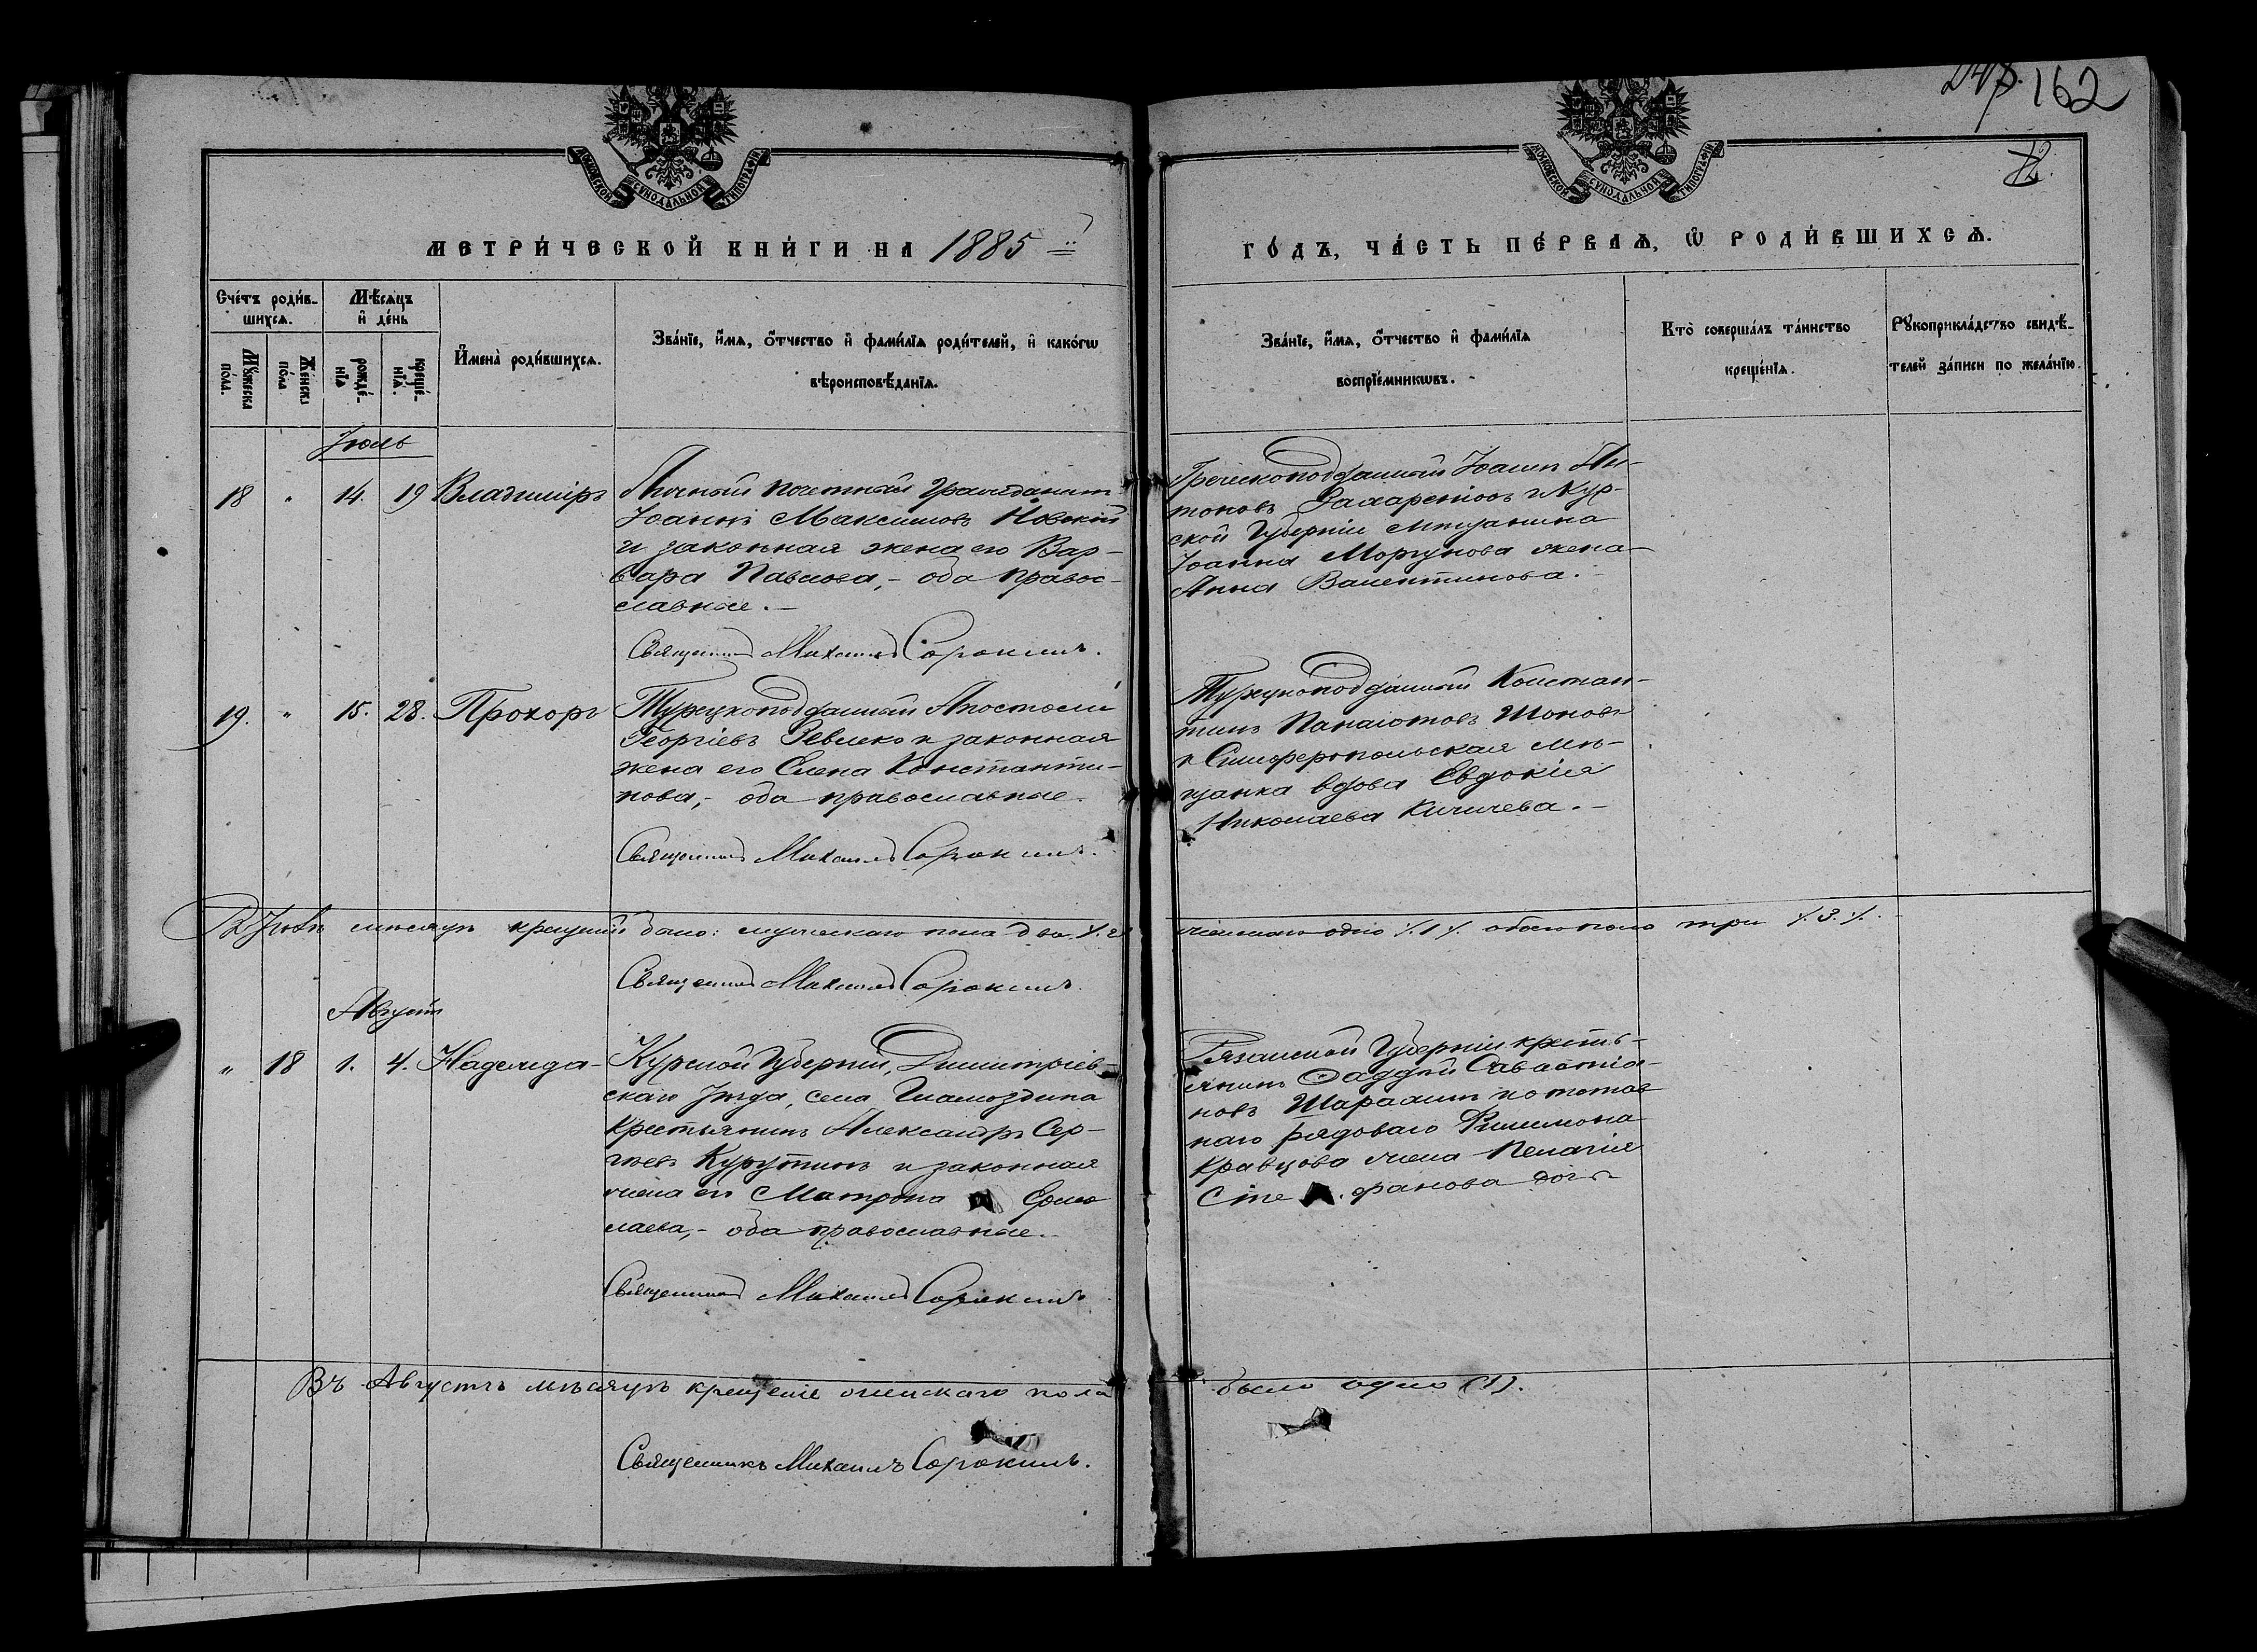 162
12.
МОСКОВСКОЙ СѴНОДАЛЬНОЙ ТИПОГРАФІИ
МОСКОВСКОЙ СѴНОДАЛЬНОЙ ТИПОГРАФІИ
МЕТРИ́ЧЕСКОЙ КНИ́ГИ НА 1885
ГО́ДЪ, ЧА́СТЬ ПЕ́РВАѦ, Ѡ РОДИ́ВШИХСѦ.
Сче́тъ роди́в-
шихсѧ.
Мѣ́сѧцъ
и҆ де́нь
Мꙋ́жеска по́ла.
Же́нска по́ла
рожде́-
нїѧ
креще́-
нїѧ.
И҆мена̀ роди́вшихсѧ.
Зва́нїе, и҆́мѧ, ѻ҆́тчество и҆ фами́лїѧ роди́телей, и҆ како́гѡ
вѣроисповѣ́данїѧ.
Зва́нїе, и҆́мѧ, ѻ҆́тчество и҆ фами́лїѧ
воспрїе́мникѡвъ.
Кто̀ соверша́лъ та́инство
креще́нїѧ.
Рꙋкоприкла́дство свидѣ́-
телей за́писи по жела́нїю.
Іюль
18 " 14. 19 Владиміръ
Личный почетный гражданинъ
Іоаннъ Максимовъ Новскій
и законная жена его Вар-
вара Павлова, - оба правос-
лавные. -
Священникъ Михаилъ Сорокинъ.
Греческоподданный Іоаннъ Ан-
тоновъ и Кур-
ской Губерніи мѣщанина
Іоанна Моргунова жена
Анна Валентинова. -
19. " 15. 28. Прохоръ
Турецкоподданный Апостолъ
Георгіевъ и законная
жена его Елена Константи-
нова, - оба православные.
Священникъ Михаилъ Сорокинъ.
Турецкоподданный Констан-
тинъ Панаіотовъ
и Симферопольская мѣ-
щанка вдова Евдокія
Николаева Кичичева. -
Въ Іюлѣ мѣсяцѣ крещеній было: мужескаго пола два /.2
женскаго одно /.1/. обоего пола три /.3./.
Священникъ Михаилъ Сорокинъ.
Августъ
" 18 1. 4. Надежда
Курской Губерніи, Димитріев-
скаго Уѣзда, села Гламаздина
Крестьянинъ Александръ Сер-
гѣевъ Курутинъ и законная
жена его Матрона Ермо
лаева, - оба православные.
Священникъ Михаилъ Сорокинъ
Рязанской Губерніи кресть-
янинъ Фаддей Савастіа-
новъ и отстав
наго рядоваго Филимона
Кравцова жена Пелагія
Сте фанова дочь
Въ Августѣ мѣсяцѣ крещеніе женскаго пола
было одно (1).
Священникъ Михаилъ Сорокинъ.